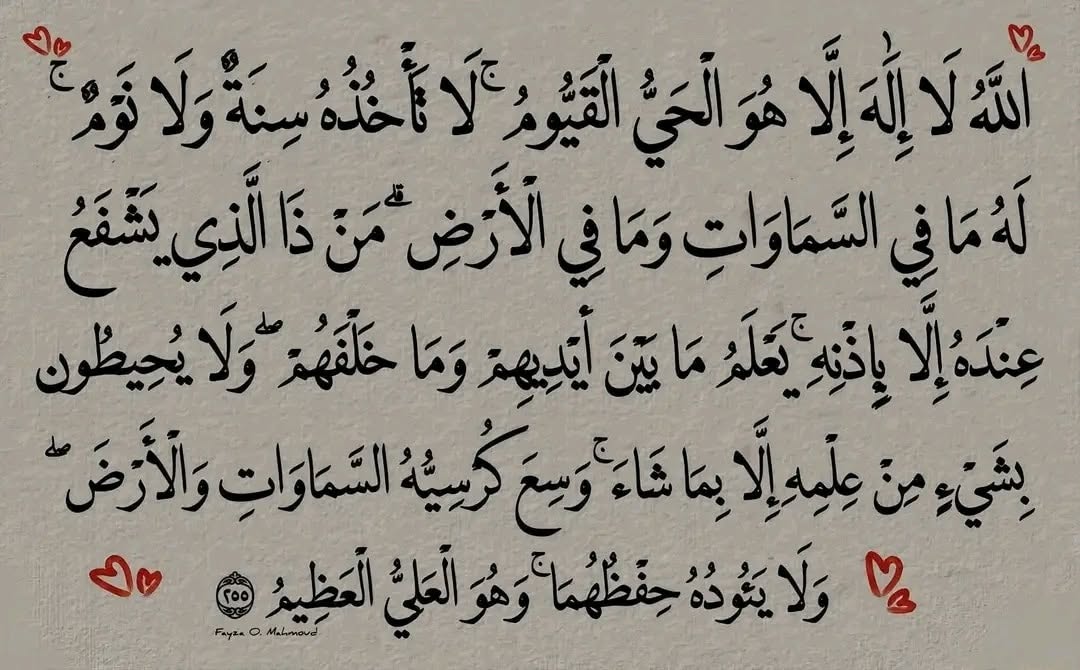 اللَّهُ لَا إِلَٰهَ إِلَّا هُوَ الْحَيُّ الْقَيُّومُ ۚ لَا تَأْخُذُهُ سِنَةٌ وَلَا نَوْمٌ ۚ
لَهُ مَا فِي السَّمَاوَاتِ وَمَا فِي الْأَرْضِ ۗ مَنْ ذَا الَّذِي يَشْفَعُ
عِنْدَهُ إِلَّا بِإِذْنِهِ ۚ يَعْلَمُ مَا بَيْنَ أَيْدِيهِمْ وَمَا خَلْفَهُمْ ۖ وَلَا يُحِيطُون
بِشَيْءٍ مِنْ عِلْمِهِ إِلَّا بِمَا شَاءَ ۚ وَسِعَ كُرْسِيُّهُ السَّمَاوَاتِ وَالْأَرْضَ ۖ
وَلَا يَئُودُهُ حِفْظُهُمَا ۚ وَهُوَ الْعَلِيُّ الْعَظِيمُ ٢٥٥
Fayza O. Mahmoud